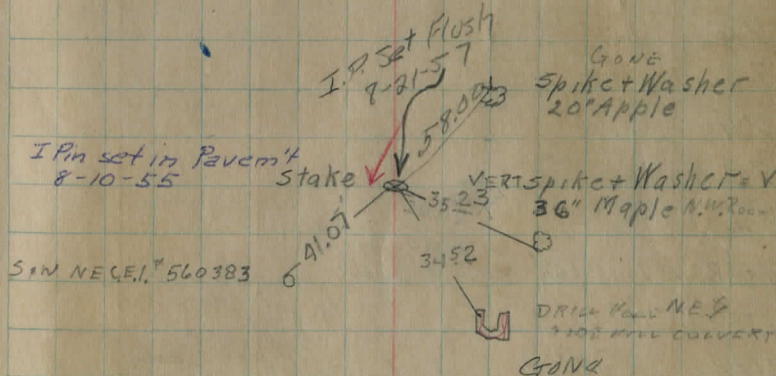 I.P. Set Flush
8-21-57
GONE
Spike + Washer
20" Apple
58.00
I Pin set in Pavem't
8-10-55
Stake
VERT Spike + Washer = V
36" Maple N.W. Root
35 23
41.07
34 52
S+N NECEI. # 560383
DRILL HOLE N.E.
CULVERT
GONE